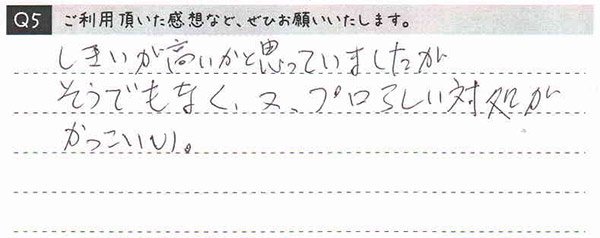 Q5 ご利用頂いた感想など、ぜひお願いいたします。
しきいが高いかと思っていましたが
そうでもなく、又、プロらしい対処が
かっこいい。